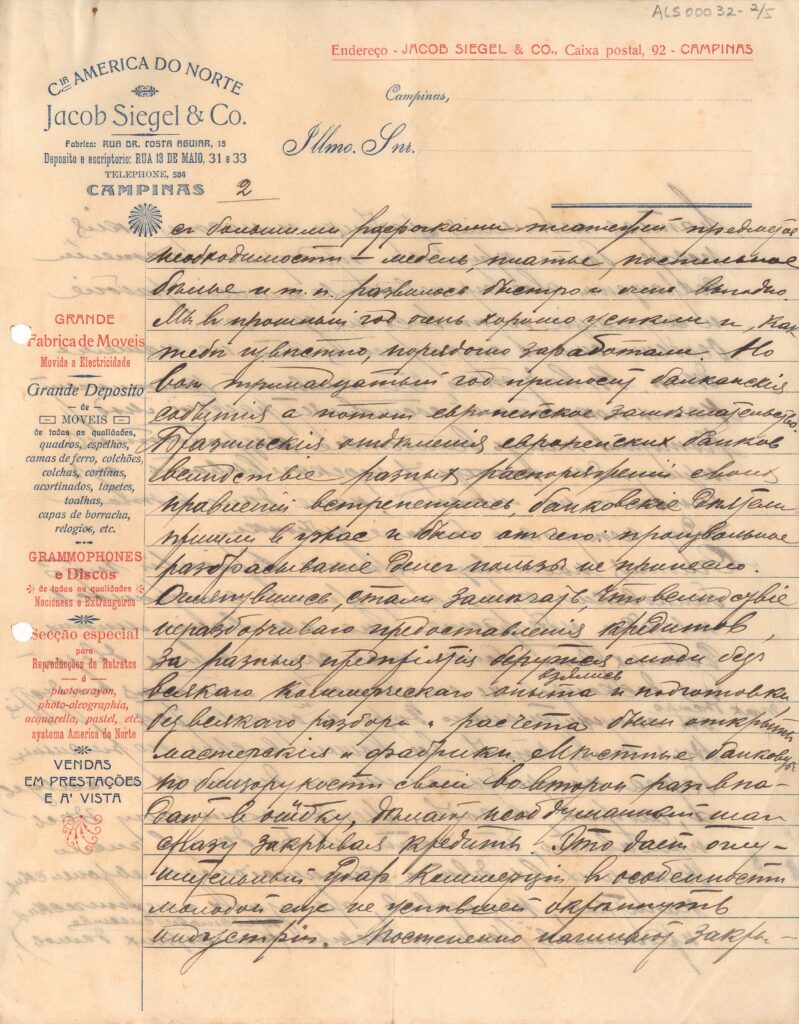 ALS 00032-2/5
Endereço - JACOB SIEGEL & CO., Caixa postal, 92 - CAMPINAS
Cia AMERICA DO NORTE
Jacob Siegel & Co.
Fabrica: RUA DR. COSTA AGUIAR, 15
Deposito e escriptorio: RUA 13 DE MAIO, 31 e 33
TELEPHONE, 584
CAMPINAS
Campinas,
Illmo. Snr.
2
GRANDE
Fabrica de Moveis
Movida a Electricidade
Grande Deposito
- de -
MOVEIS
de todas as qualidades,
quadros, espelhos,
camas de ferro, colchões,
colchas, cortinas,
acortinados, tapetes,
toalhas,
capas de borracha,
relogios, etc.
GRAMMOPHONES
e Discos
de todas as qualidades
Nacionaes e Extrangeiros
Secção especial
para
Reproducções de Retratos
á
photo-crayon,
photo-oleographia,
acquarella, pastel, etc.,
systema America do Norte
VENDAS
EM PRESTAÇÕES
E A' VISTA
съ большими разсрочками платежей предметов
необходимости – мебель, платье, постельное
белье и т. п. развилось быстро и очень выгодно.
Мы в прошлый год очень хорошо успели и, как
тебе известно, порядочно заработали. Но
вот тринадцатый год приносит балканскія
событія а потом европейское замешательство
Бразильскія отделенія европейских банков
вследствіе разных распоряженій своих
правленій встрепенулись банковскіе деятели
пришли в ужас и было отчего: произвольное
разбрасываніе денег пользы не принесло.
Оглянувшись, стали замечать, что вследствіе
неразборчиваго предоставленія кредитов,
за разныя предпріятія берутся люди без
взялись
всякаго коммерческаго опыта и подготовки
без всякаго разбора и расчета были открыты
мастерскія и фабрики. Местные банковцы
по близорукости своей во второй раз впа-
дают в ошибку, делают необдуманный шаг
сразу закрывая кредиты. Это дает оглу-
шительный удар коммерціи в особенности
молодой еще не успевшей окрепнуть
индустріи. Постепенно начинают закры-